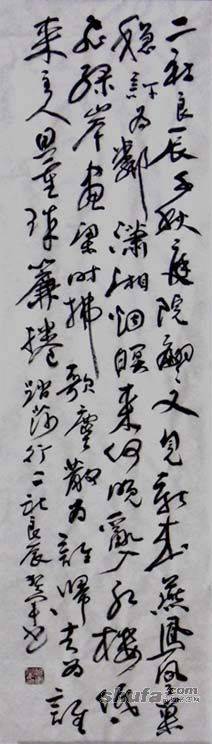 二社良辰千秋庭院翩〻又見新來燕鳳凰巢
穩許為鄰瀟湘烟暝來何晚亂入紅樓低
飛綠岸畫梁時拂歌塵散為誰歸去為誰
來主人恩重珠簾捲踏莎行二社良辰書
shufa.com